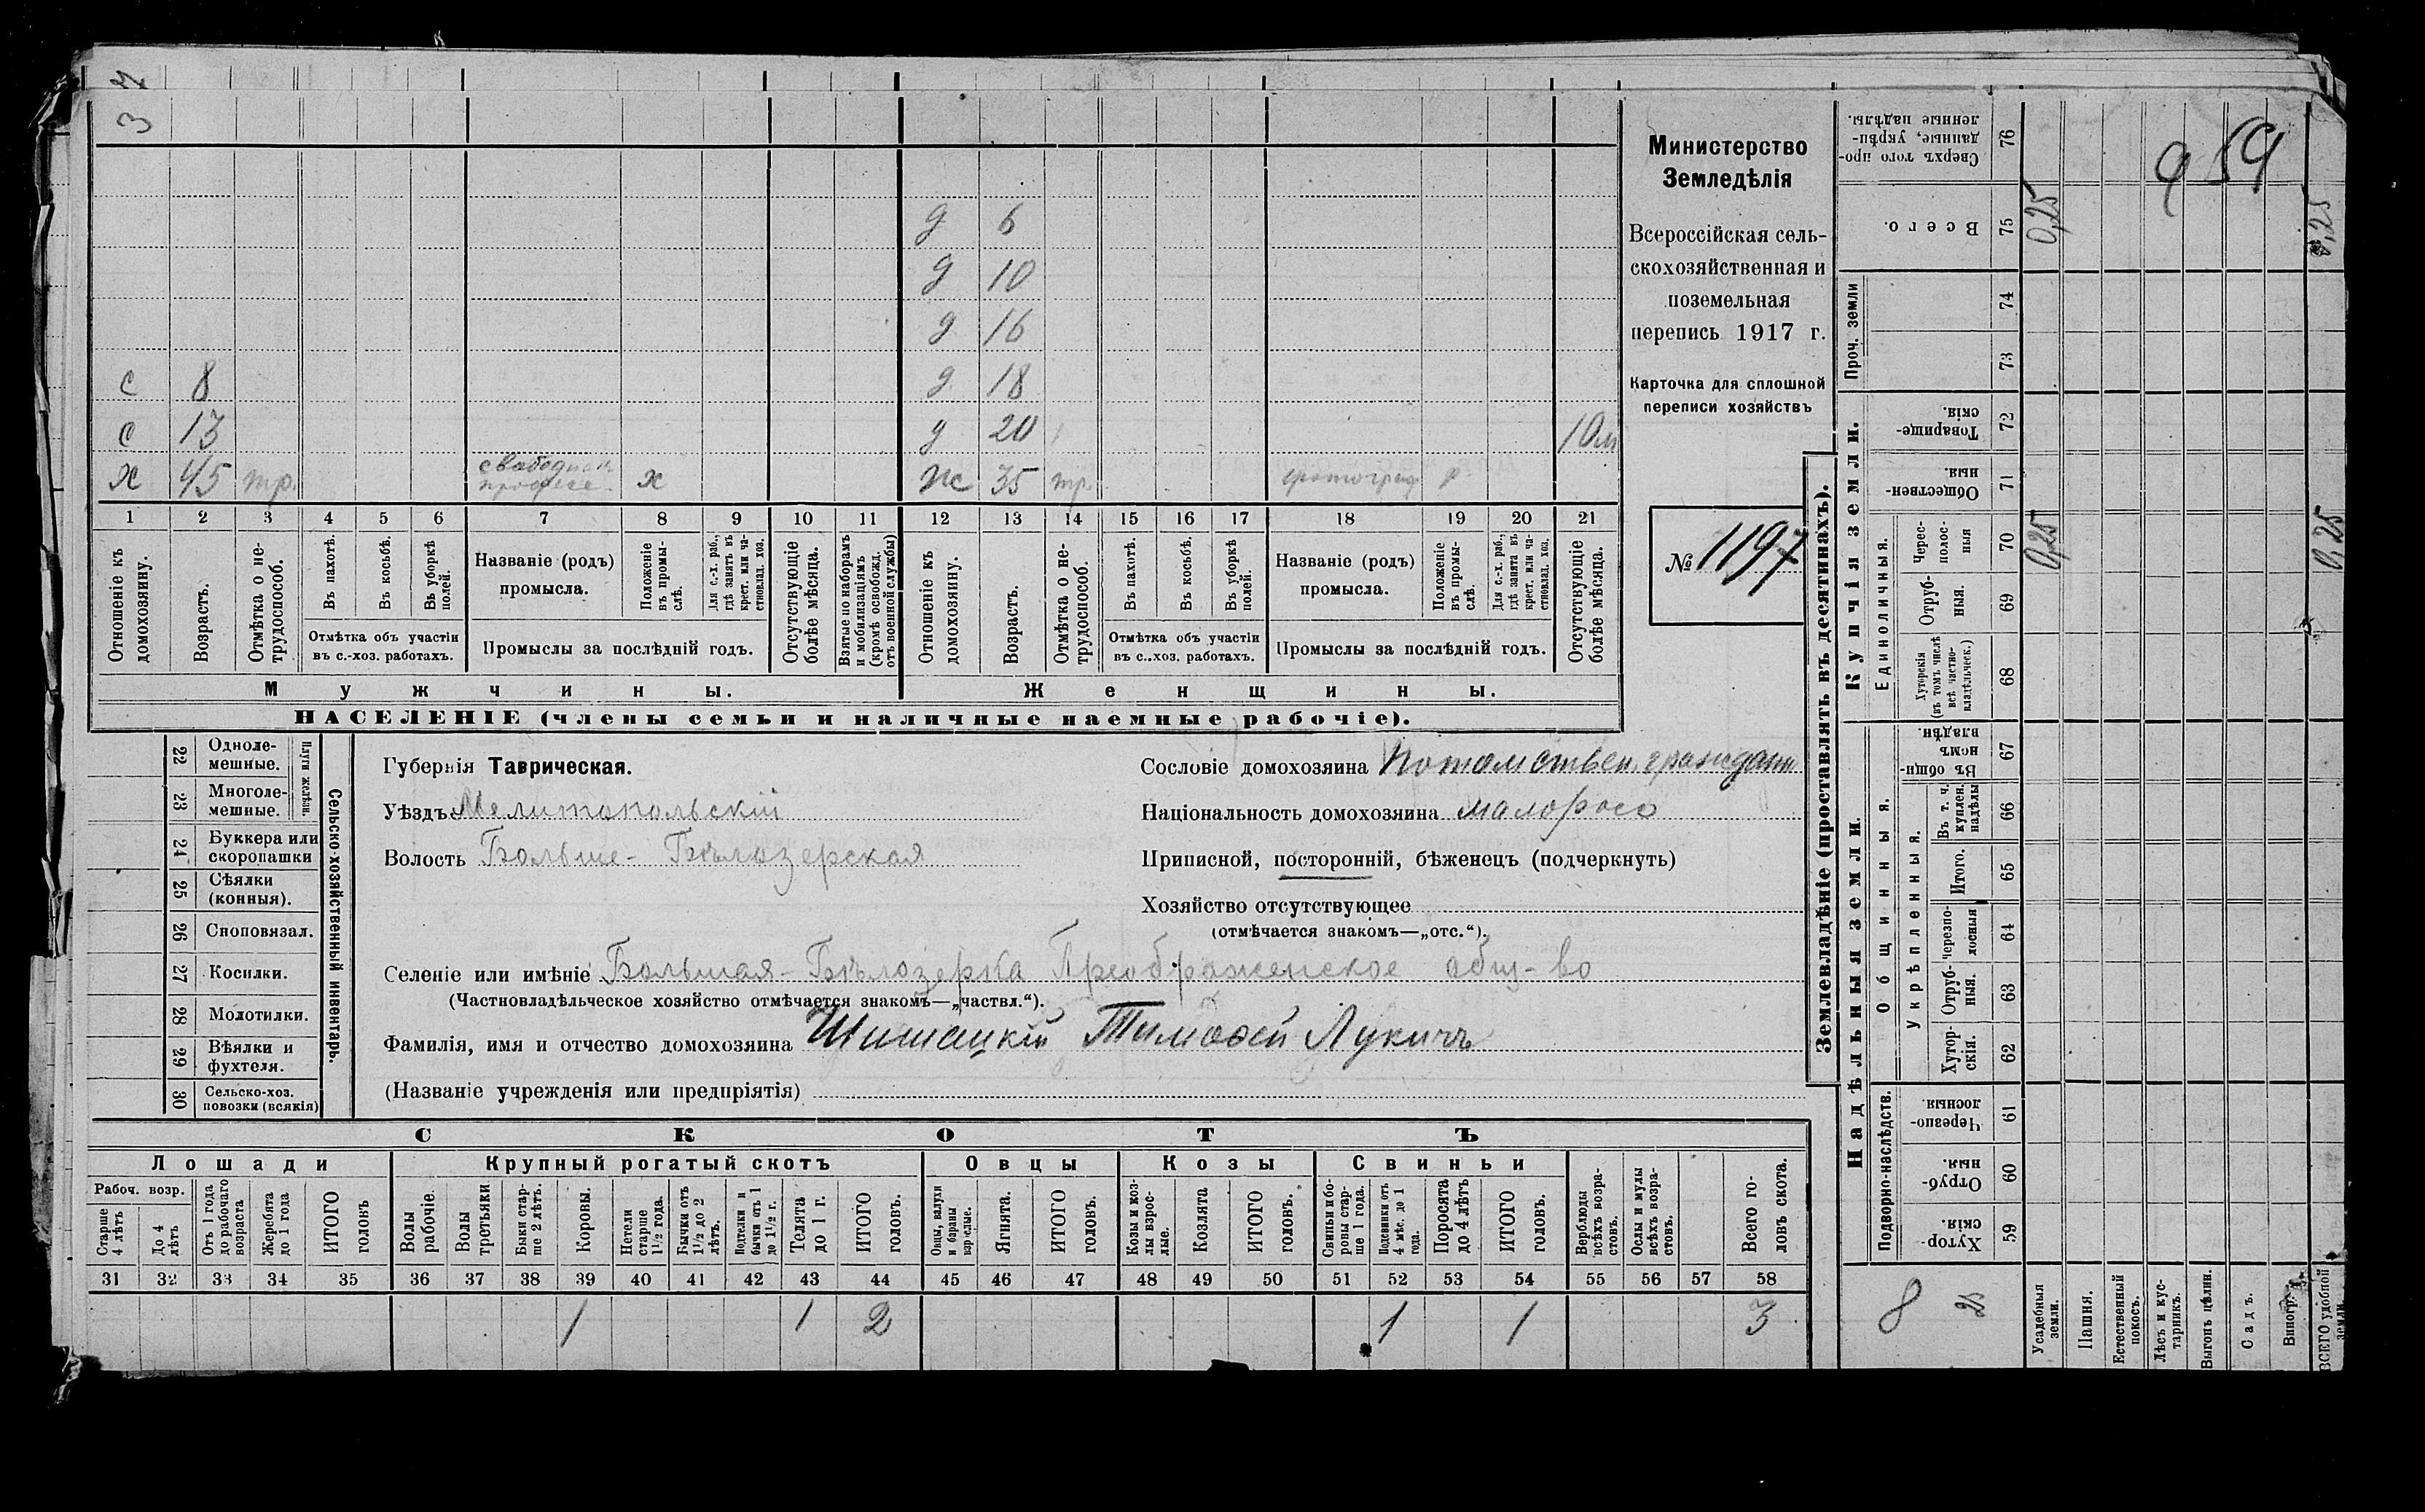 3
д 6
д 10
д 16
с 8 д 18
с 13 д 20 10м
х 45 тр. свободная професс. х ж 35 тр. фотограф. р
1 2 3 4 5 6 7 8 9 10 11 12 13 14 15 16 17 18 19 20 21
Отношеніе къ домохозяину.
Возрастъ.
Отмѣтка о нетрудоспособ.
Въ пахотѣ.
Въ косьбѣ.
Въ уборкѣ полей.
Отмѣтка объ участіи
въ с.-хоз. работахъ.
Названіе (родъ)
промысла.
Положеніе въ промыслѣ.
Для с.-х. раб., гдѣ занятъ въ крест. или частновлад. хоз.
Промыслы за послѣдній годъ.
Отсутствующіе болѣе мѣсяца.
Взятые по наборамъ и мобилизаціямъ (кромѣ освобожд. отъ военной службы)
Отношеніе къ домохозяину.
Возрастъ.
Отмѣтка о нетрудоспособ.
Въ пахотѣ.
Въ косьбѣ.
Въ уборкѣ полей.
Отмѣтка объ участіи
въ с..хоз. работахъ.
Названіе (родъ)
промысла.
Положеніе въ промыслѣ.
Для с.-х. раб., гдѣ занята въ крест. или частновлад. хоз.
Промыслы за послѣдній годъ.
Отсутствующіе болѣе мѣсяца.
Мужчины. Женщины.
НАСЕЛЕНІЕ (члены семьи и наличные наемные рабочіе).
Министерство
Земледѣлія
Всероссійская сель-
скохозяйственная и
поземельная
перепись 1917 г.
Карточка для сплошной
переписи хозяйствъ
№ 1197
22 Одноле-
мешные.
23 Многоле-
мешные.
Плуги желѣзн.
24 Буккера или
скоропашки
25 Сѣялки
(конныя).
26 Сноповязал.
27 Косилки.
28 Молотилки.
29 Вѣялки и
фухтеля.
30 Сельско-хоз.
повозки (всякія)
Сельско-хозяйственный инвентарь.
Губернія Таврическая.
Уѣздъ Мелитопольскій
Волость Больше-Бѣлозерская
Сословіе домохозяина Потомствен. граждан
Національность домохозяина малоросс
Приписной, посторонній, бѣженецъ (подчеркнуть)
Хозяйство отсутствующее
(отмѣчается знакомъ—„отс.“).
Селеніе или имѣніе Большая-Бѣлозерка Преображенское общ-во
(Частновладѣльческое хозяйство отмѣчается знакомъ—„частвл.“).
Фамилія, имя и отчество домохозяина Шишацкій Тимофей Лукичъ
(Названіе учрежденія или предпріятія)
СКОТЪ
Лошади Крупный рогатый скотъ Овцы Козы Свиньи
Рабоч. возр.
Старше 4 лѣтъ
До 4 лѣтъ
Отъ 1 года до рабочаго возраста
Жеребята до 1 года
ИТОГО головъ
Волы рабочіе.
Волы третьяки
Быки старше 2 лѣтъ.
Коровы.
Нетели старше 1½ года.
Бычки отъ 1½ до 2 лѣтъ.
Подтелки и бычки отъ 1 до 1½ г.
Телята до 1 г.
ИТОГО головъ.
Овцы, валухи и бараны взрослые.
Ягнята.
ИТОГО головъ.
Козы и козлы взрослые.
Козлята
ИТОГО головъ.
Свиньи и боровы старше 1 года.
Подсвинки отъ 4 мѣс. до 1 года.
Поросята до 4 лѣтъ
ИТОГО головъ.
Верблюды всѣхъ возрастовъ.
Ослы и мулы всѣхъ возрастовъ.
Всего головъ скота.
31 32 33 34 35 36 37 38 39 40 41 42 43 44 45 46 47 48 49 50 51 52 53 54 55 56 57 58
1 1 2 1 1 3
Землевладѣніе (проставлять въ десятинахъ).
Купчія земли.
Надѣльныя земли.
Сверхъ того проданные, укрѣпленные надѣлы. 76
Всего. 75 0,25 0,25
Проч. земли 74
73
Товарищескія. 72
Общественныя. 71
Единоличныя.
Чересполосныя 70 0,25 0,25
Отрубныя. 69
Хуторскія (въ томъ числѣ всѣ частновладѣльческ.) 68
Общинныя.
Въ общинномъ владѣн. 67
Укрѣпленныя.
Въ т. ч. куплен. надѣлы 66
Итого. 65
черезполосныя 64
Отрубныя. 63
Хуторскія. 62
Подворно-наслѣдств.
Черезполосныя. 61
Отрубныя. 60
Хуторскія. 59
959
8
Усадебныя земли.
Пашня.
Естественный покосъ.
Лѣсъ и кустарникъ.
Выгонъ цѣлин.
Садъ.
Виногр.
ВСЕГО удобной земли.